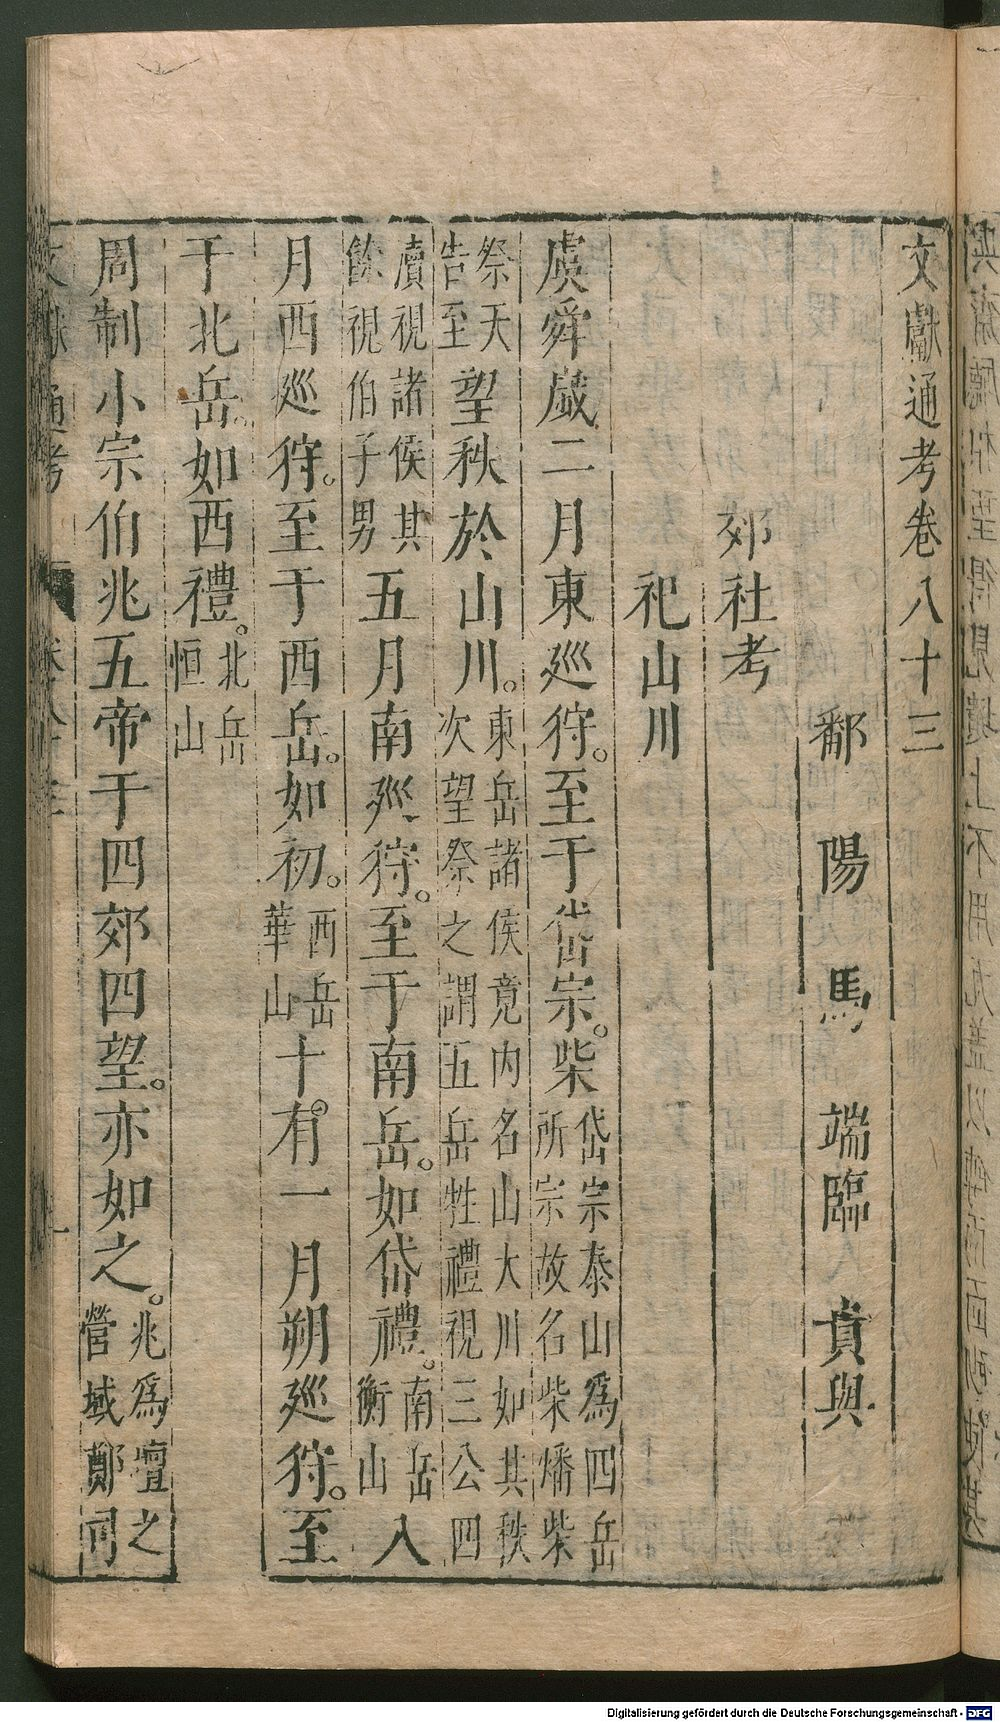 文獻通考卷八十三
鄱陽馬端臨貴與
郊社考
祀山川
虞舜歲二月東廵狩。至于岱宗。柴岱宗泰山爲四岳所宗故名柴燔柴
祭天告至望秩於山川。東岳諸侯竟内名山大川如其秩次望祭之謂五岳牲禮視三公四
瀆視諸侯其餘視伯子男五月南廵狩。至于南岳。如岱禮。南岳衡山八
月西廵狩。至于西岳。如初。西岳華山十有一月朔廵狩。至
于北岳。如西禮。北岳恒山
周制小宗伯兆五帝于四郊四望。亦如之。兆爲壇之營域鄭司
文獻通考 卷八十三 一
Digitalisierung gefördert durch die Deutsche Forschungsgemeinschaft - DFG